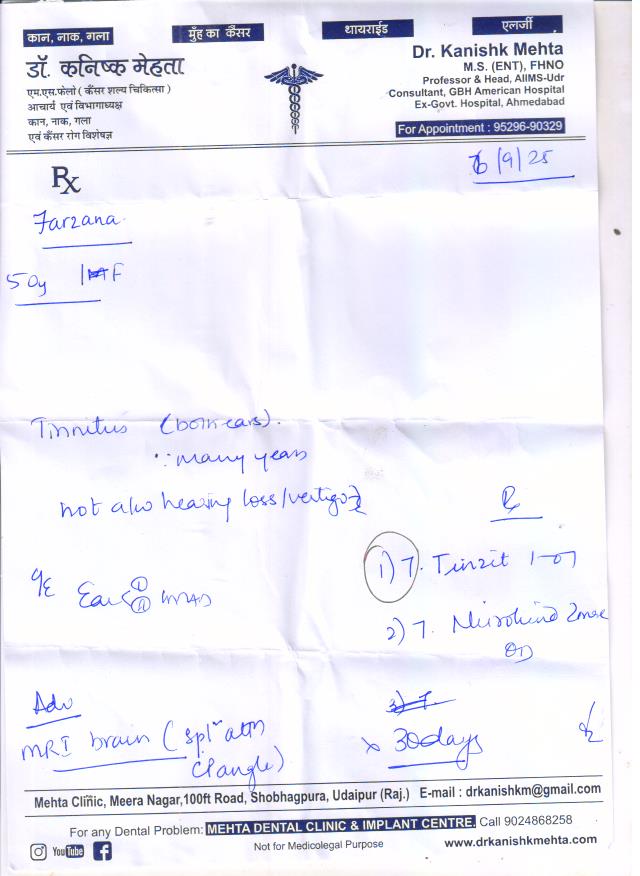 कान, नाक, गला
मुँह का कैंसर
थायराईड
एलर्जी
डॉ. कनिष्क मेहता
एम.एस.फेलो ( कैंसर शल्य चिकित्सा )
आचार्य एवं विभागाध्यक्ष
कान, नाक, गला
एवं कैंसर रोग विशेषज्ञ
Dr. Kanishk Mehta
M.S. (ENT), FHNO
Professor & Head, AIIMS-Udr
Consultant, GBH American Hospital
Ex-Govt. Hospital, Ahmedabad
For Appointment : 95296-90329
/9/25
Rx
Farzana
50y F
Tinnitus (both ears).
∵ many years
not a/w hearing loss/vertigo
Rx
1) T. Tinzit 1-0-1
O/E Ear
2) T.
OD
Adv
MRI brain (spl attn
CP angle)
x 30days
Mehta Clinic, Meera Nagar,100ft Road, Shobhagpura, Udaipur (Raj.) E-mail : drkanishkm@gmail.com
For any Dental Problem: MEHTA DENTAL CLINIC & IMPLANT CENTRE. Call 9024868258
YouTube
Not for Medicolegal Purpose
www.drkanishkmehta.com